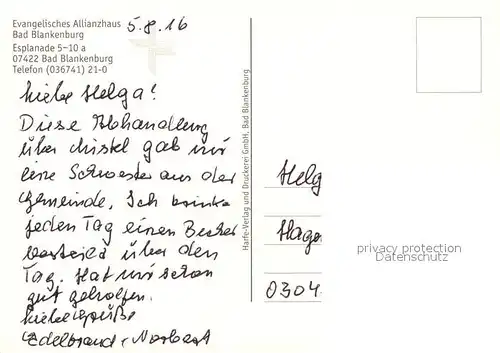 Evangelisches Allianzhaus
Bad Blankenburg
Esplanade 5-10 a
07422 Bad Blankenburg
Telefon (036741) 21-0
5.8.16
Liebe Helga!
Diese Abhandlung
über Mistel gab mir
eine Schwester aus der
Gemeinde. Ich trinke
jeden Tag einen Becher
verteilt über den
Tag. Hat mir schon
gut geholfen.
Liebe Grüße
Edelbraud + Norbert
Harfe-Verlag und Druckerei GmbH, Bad Blankenburg
Helg
Hage
0304
privacy protection
Datenschutz